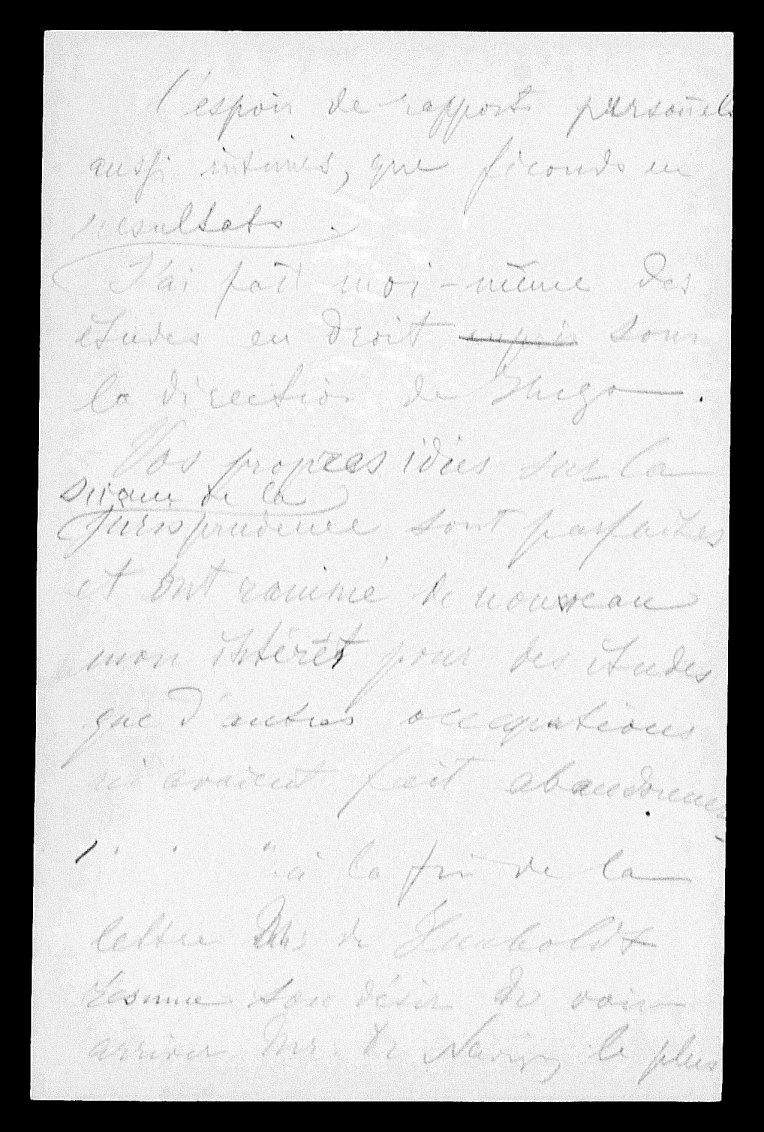 l'espoir de rapports personnels
aussi intimes, que féconds en
résultats.
J'ai fait moi-même des
études en droit sous
la direction de Hugo.
Vos propres idées sur la
science de la
jurisprudence sont parfaites
et ont ranimé de nouveau
mon intérêt pour des études
que d'autres occupations
m'avaient fait abandonner
" à la fin de la
lettre Mr de Humboldt
résume son désir de voir
arriver Mr. de Savigny le plus